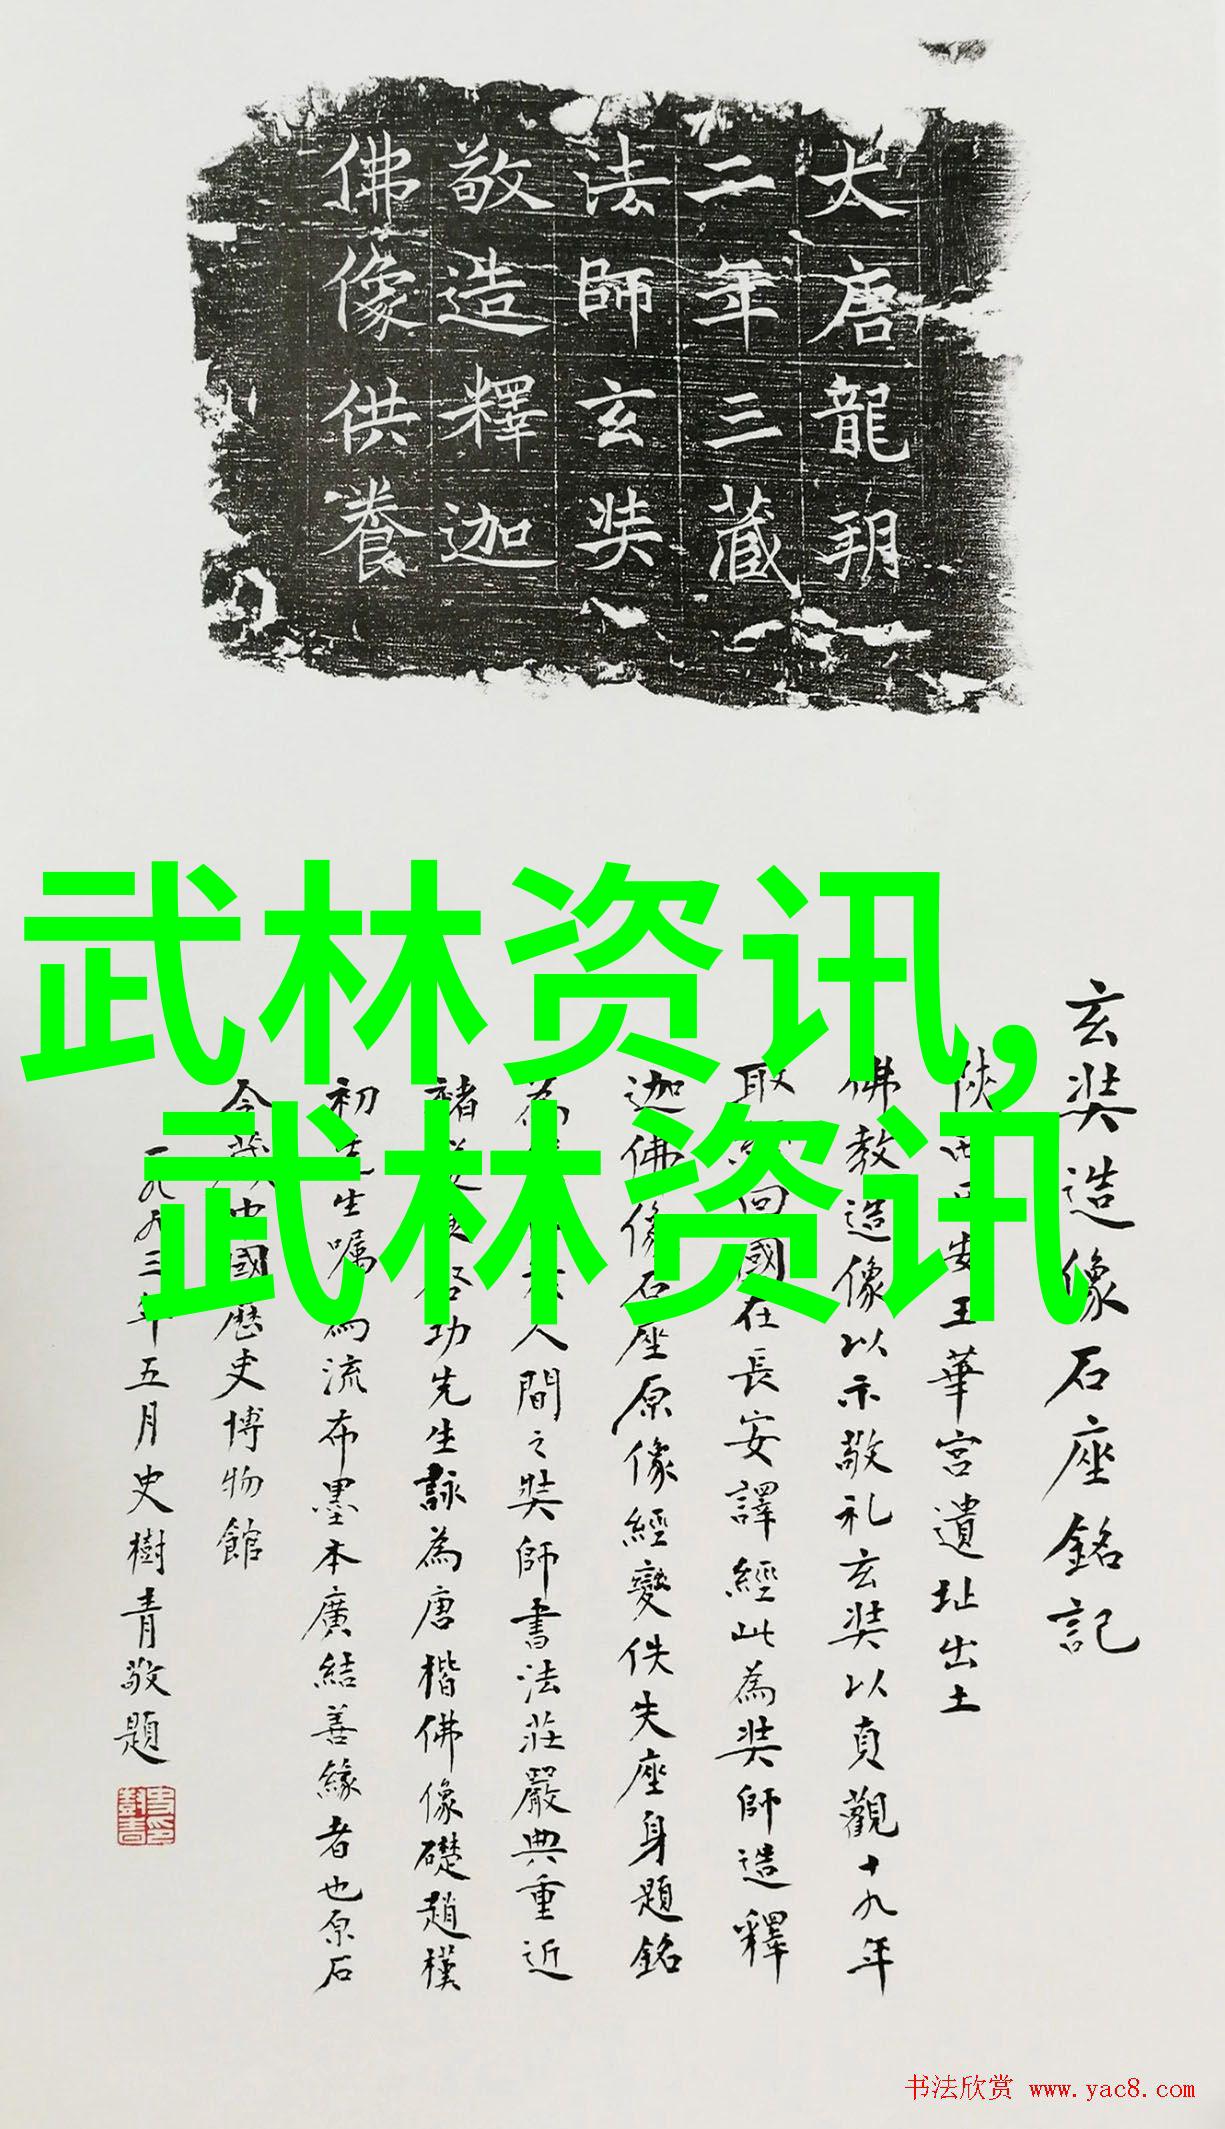 大唐龍朔
二年三藏
法師玄奘
敬造釋迦
佛像供養
武林资讯,
武林资讯
玄奘造像石座銘記
陝西安玉華宮遺址出土
佛教造像以示敬礼玄奘以貞觀十九年
取經回國在長安譯經此為奘師造釋
迦佛像石座原像經變佚失座身題銘
為人間之奘師書法莊嚴典重近
褚遂良啓功先生詠為唐楷佛像礎趙樸
初先生囑為流布墨本廣結善緣者也原石
今藏中國歷史博物館
一九九三年五月史樹青敬題
书法欣赏 www.yac8.com